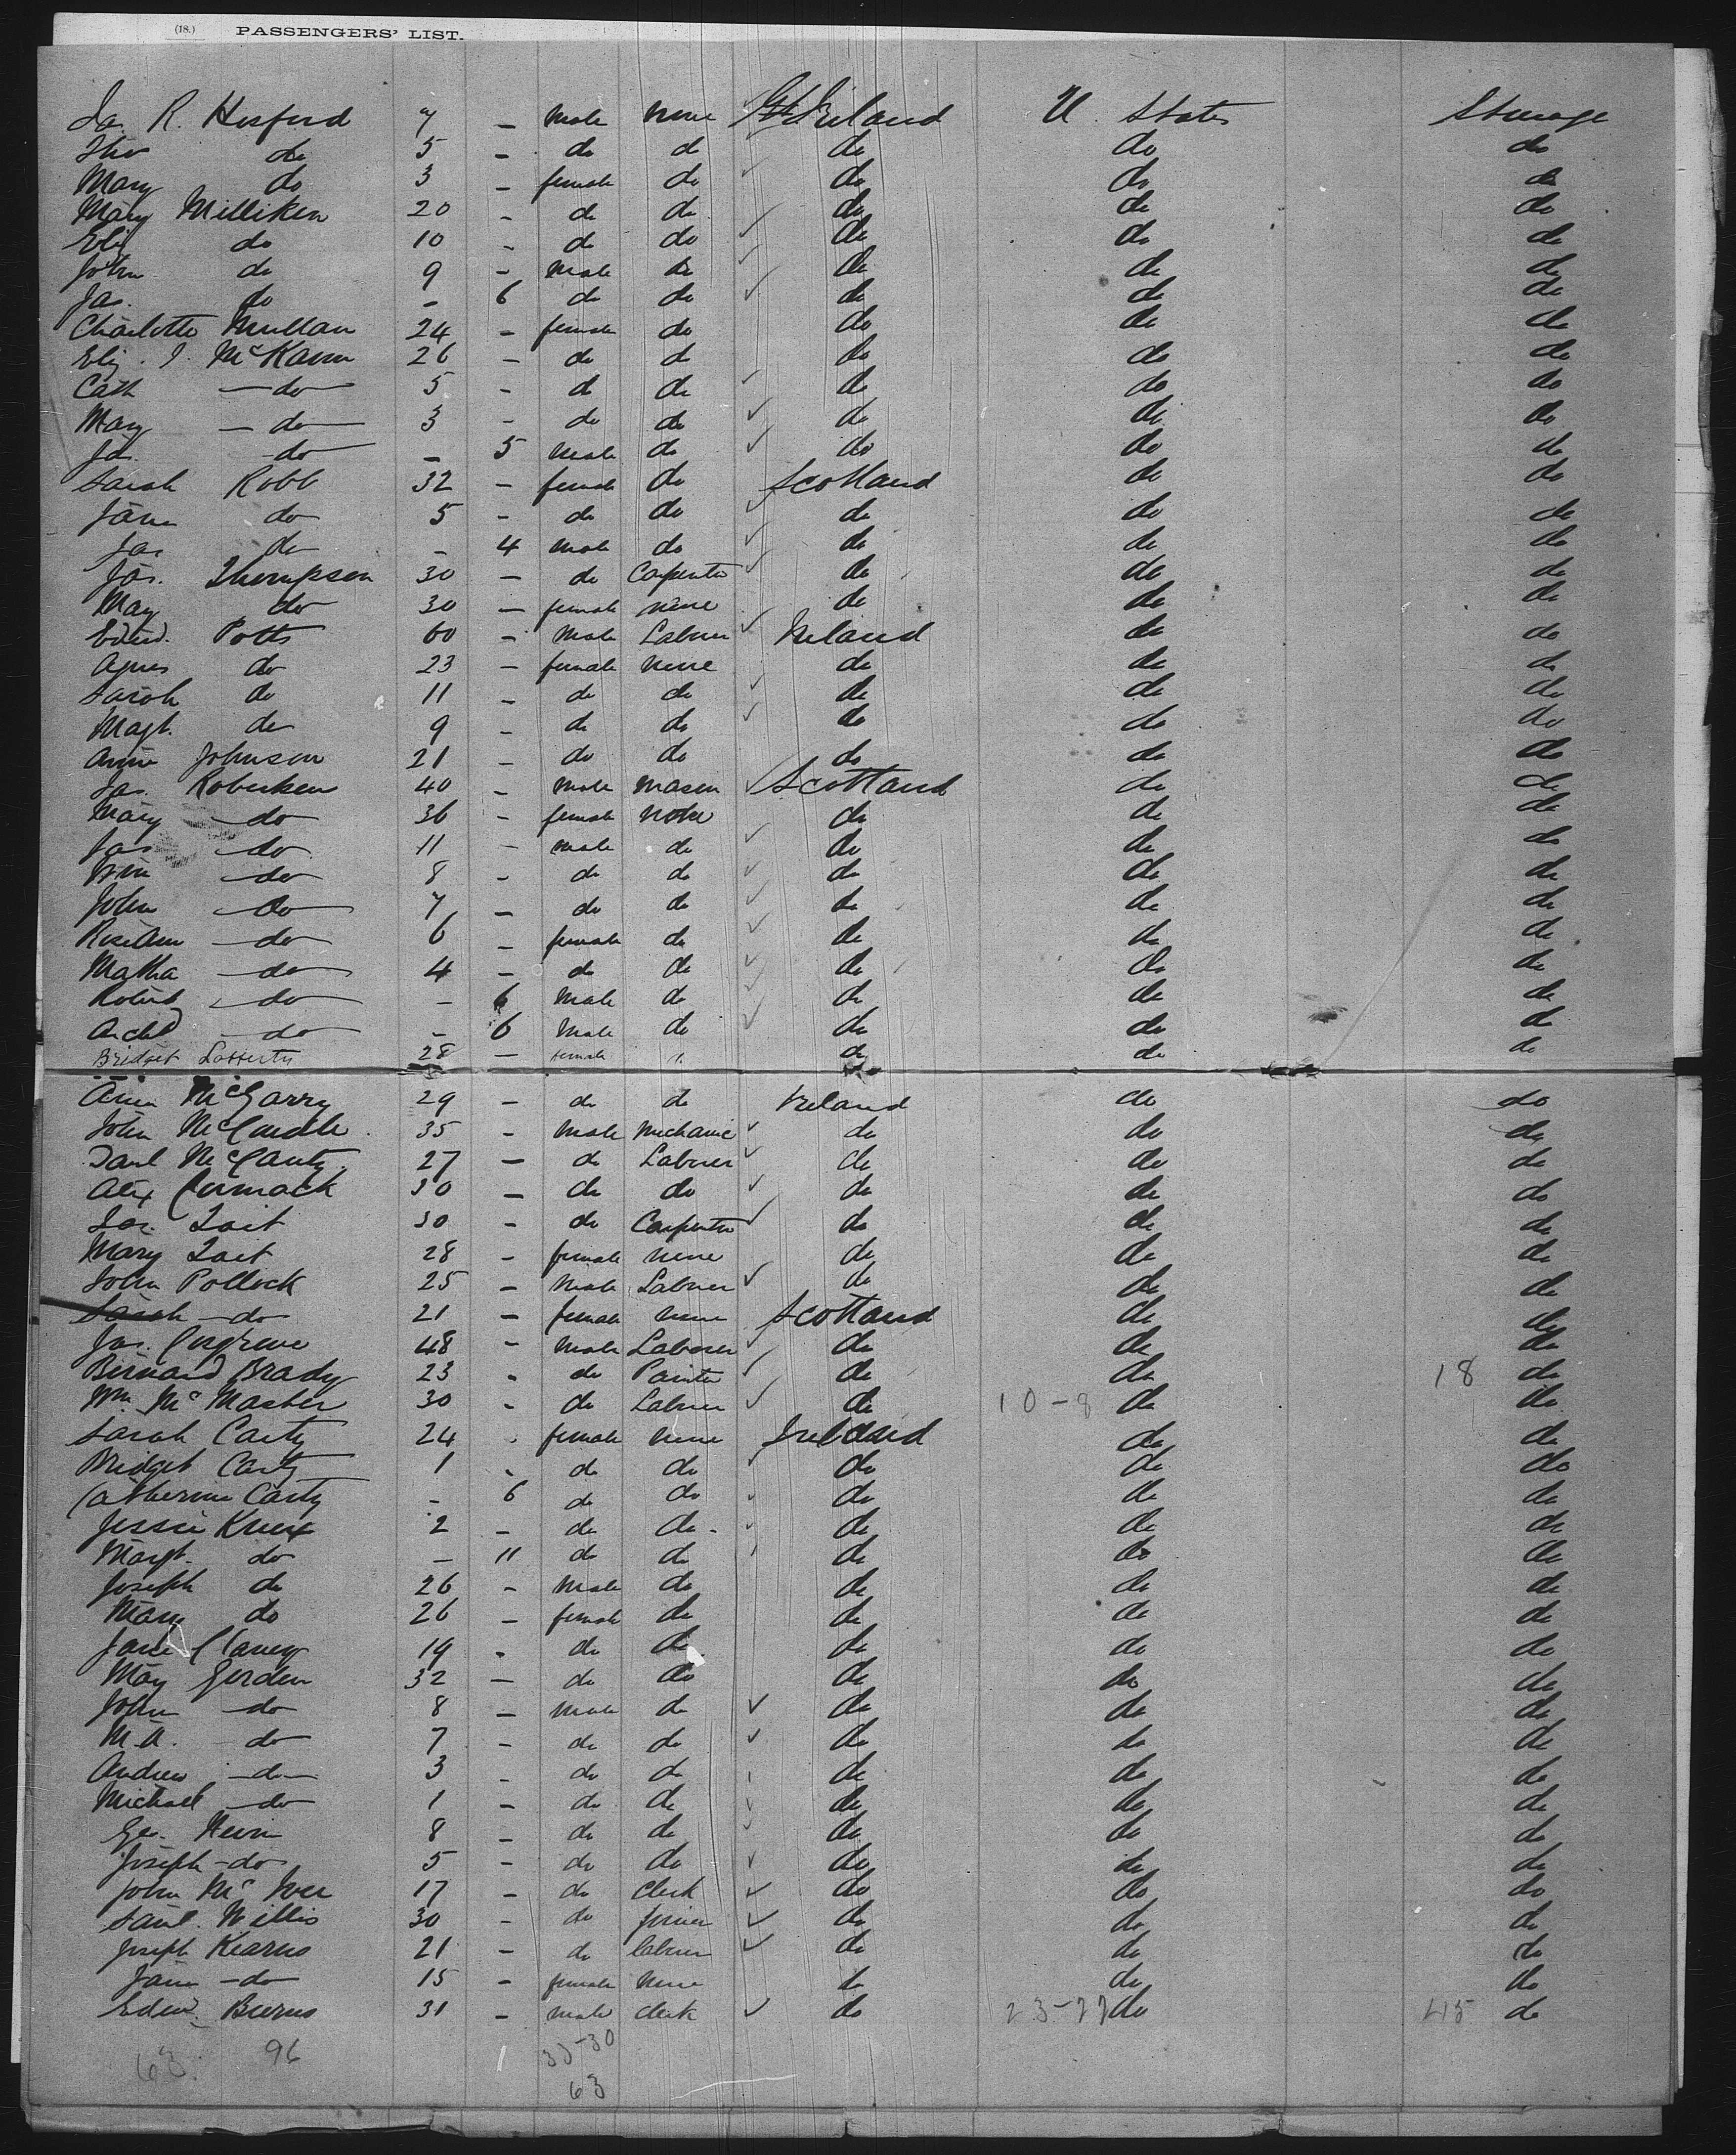 (18.) PASSENGERS' LIST.
R. Hosford 7 - male none Ireland U. States Steerage
Tho do 5 - do do do do do
Mary do 3 - female do do do do
Mary Milliken 20 - do do do do do
Eliz do 10 - do do do do do
John do 9 - male do do do do
Jas. do - 6 do do do do do
Charlotte Mullan 24 - female do do do do
Eliz. J. McKann 26 - do do do do do
Cath - do - 5 - do do do do do
Mary - do - 3 - do do do do do
Jas. - do - - 5 male do do do do
Sarah Robb 32 - female do Scotland do do
Jane do 5 - do do do do do
Jas do - 4 male do do do do
Jas. Thompson 30 - do Carpenter do do do
Mary do 30 - female none do do do
Edwd. Potts 60 - male Laborer Ireland do do
Agnes do 23 - female none do do do
Sarah do 11 - do do do do do
Magt. do 9 - do do do do do
Annie Johnson 21 - do do do do do
Jas. Robertson 40 - male mason Scotland do do
Mary - do 36 - female none do do do
Jas - do 11 - male do do do do
Wm - do 8 - do do do do do
John - do 7 - do do do do do
RoseAnn - do 6 - female do do do do
Martha - do 4 - do do do do do
Robert - do - 6 male do do do do
Archd - do - 6 male do do do do
Bridget Lafferty 28 - female do do do
Ann McGarry 29 - do do Ireland do do
John McCardle 35 - male mechanic do do do
Danl McCarty 27 - do Laborer do do do
Alex Cormack 30 - do do do do do
Jas. Tait 30 - do Carpenter do do do
Mary Tait 28 - female none do do do
John Pollock 25 - male Laborer do do do
Sarah - do 21 - female none Scotland do do
Jas. Cosgrove 48 - male Laborer do do do
Bernard Brady 23 - do Painter do do 18 do
Wm. McMaster 30 - do Laborer do 10-8 do do
Sarah Carty 24 - female none Ireland do do
Bridget Carty 1 - do do do do do
Catherine Carty - 6 do do do do do
Jessie Knox 2 - do do do do do
Margt. do - 11 do do do do do
Joseph do 26 - male do do do do
Mary do 26 - female do do do do
Jane Clancy 19 - do do do do do
Mary Gordon 32 - do do do do do
John - do 8 - male do do do do
M.A. - do 7 - do do do do do
Andrew - do - 3 - do do do do do
Michael - do 1 - do do do do do
Geo. 8 - do do do do do
Joseph - do 5 - do do do do do
John McIver 17 - do clerk do do do
Saml. Willis 30 - do do do do
Joseph Kearns 21 - do laborer do do do
Jane - do 15 - female none do do do
Edwd. Burns 31 - male clerk do 23-22 do 45 do
63 96 33-30
63